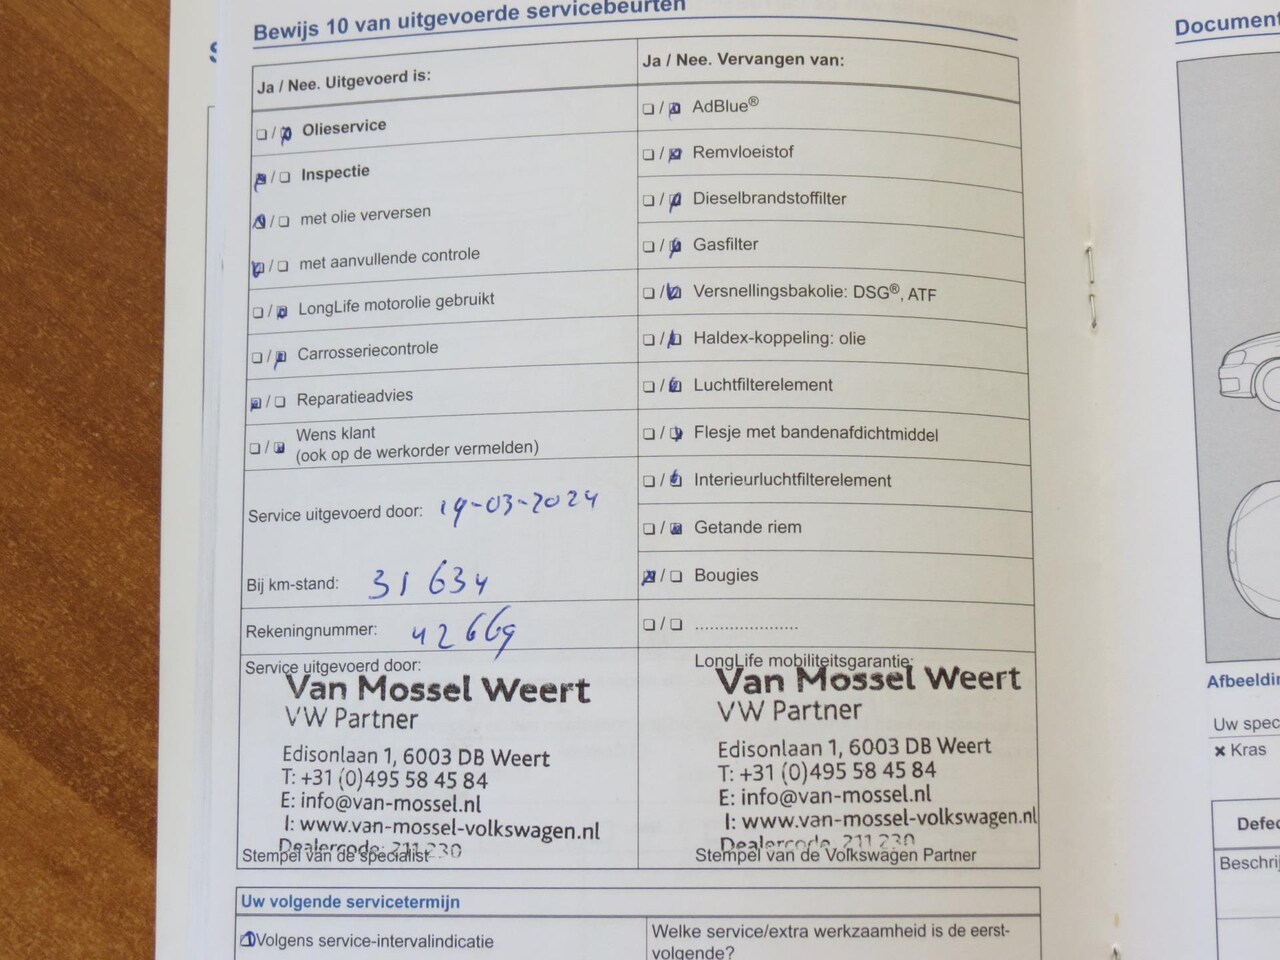 Bewijs 10 van uitgevoerde servicebeurten
Ja / Nee. Uitgevoerd is:
Olieservice
Inspectie
met olie verversen
met aanvullende controle
LongLife motorolie gebruikt
Carrosseriecontrole
Reparatieadvies
Wens klant
(ook op de werkorder vermelden)
Service uitgevoerd door: 19-03-2024
Bij km-stand: 31 634
Rekeningnummer: 42669
Service uitgevoerd door:
Van Mossel Weert
VW Partner
Edisonlaan 1, 6003 DB Weert
T: +31 (0)495 58 45 84
E: info@van-mossel.nl
I: www.van-mossel-volkswagen.nl
Dealercode: 211 230
Stempel van de specialist
Ja / Nee. Vervangen van:
AdBlue®
Remvloeistof
Dieselbrandstoffilter
Gasfilter
Versnellingsbakolie: DSG®, ATF
Haldex-koppeling: olie
Luchtfilterelement
Flesje met bandenafdichtmiddel
Interieurluchtfilterelement
Getande riem
Bougies
LongLife mobiliteitsgarantie:
Van Mossel Weert
VW Partner
Edisonlaan 1, 6003 DB Weert
T: +31 (0)495 58 45 84
E: info@van-mossel.nl
I: www.van-mossel-volkswagen.nl
Dealercode 211 230
Stempel van de Volkswagen Partner
Uw volgende servicetermijn
Volgens service-intervalindicatie
Welke service/extra werkzaamheid is de eerst-
volgende?
Document
Afbeeldin
Uw spec
× Kras
Defec
Beschrij